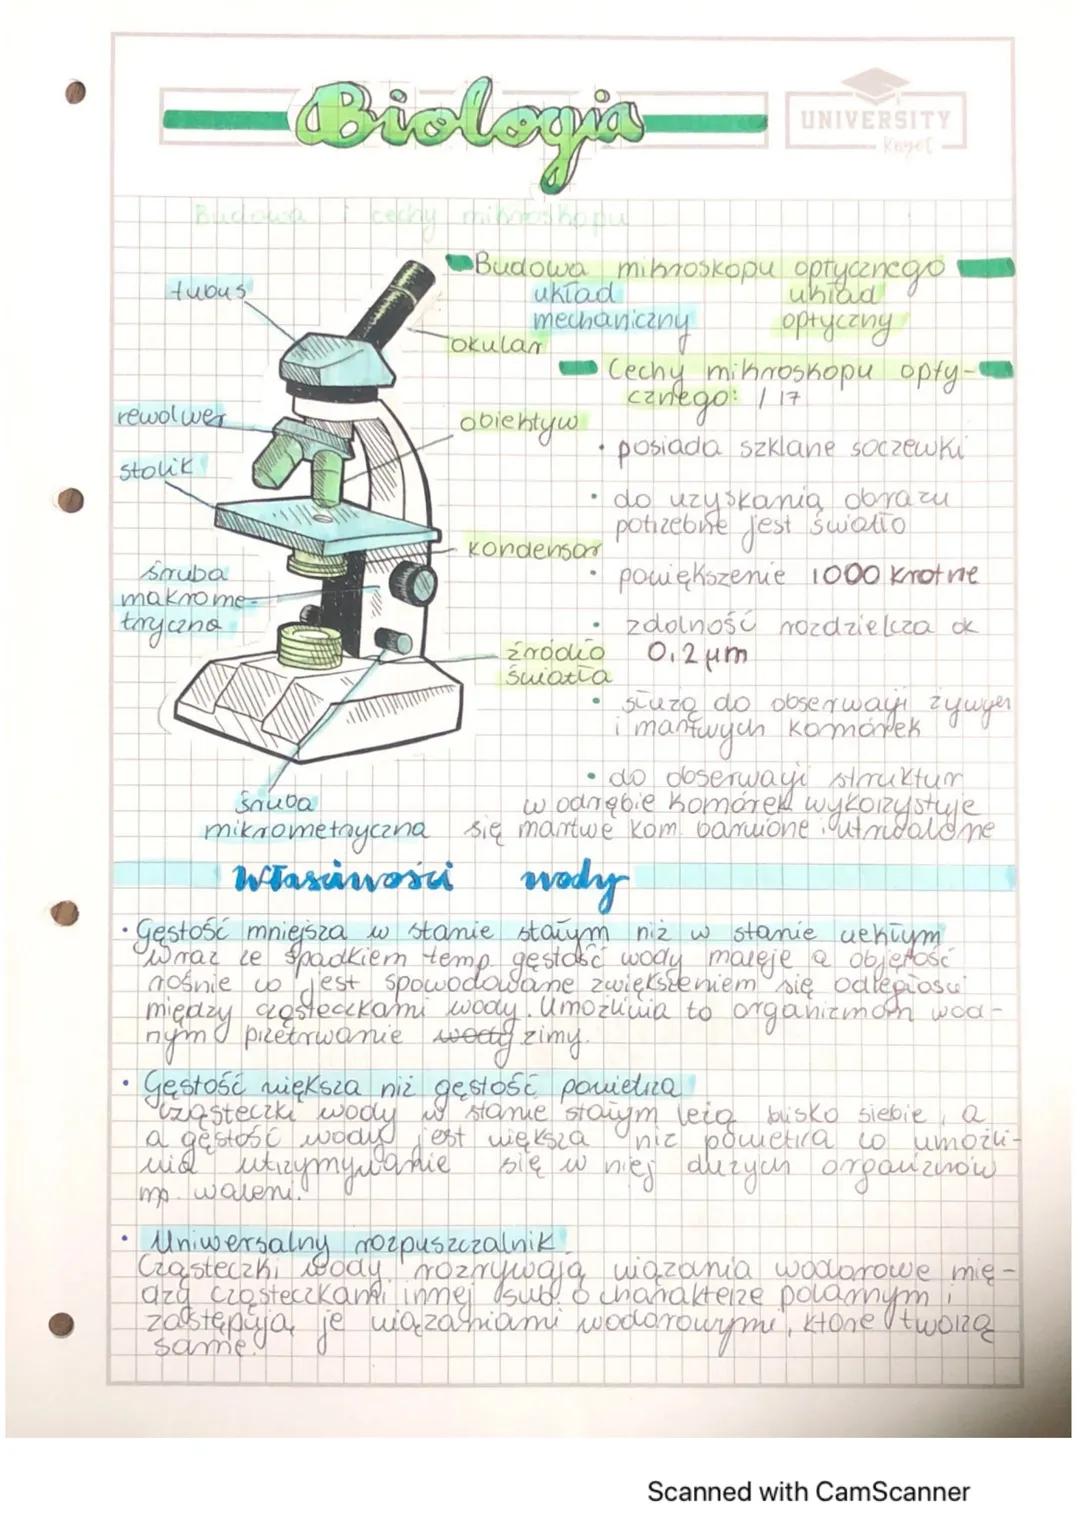 Biologia
UNIVERSITY
Budowa i cechy mikroskopu
Budowa mikroskopu optycznego
tubus
układ układ
mechaniczny optyczny
okular
Cechy mikroskopu opty-
cznego: / 17
rewolwer
obiektyw
• posiada szklane soczewki
stolik
• do uzyskania obrazu
potrzebne jest światło
kondensor
• powiększenie 1000 krotne
śruba
makrome-
tryczna
• zdolność rozdzielcza ok
0,2 µm
źródło
światła
• służą do obserwacji żywych
i martwych komórek
• do obserwacji struktur
w odrębie komórek wykorzystuje
się martwe kom. barwione i utrwalone
śruba
mikrometryczna
Właściwości wody
• Gęstość mniejsza w stanie stałym niż w stanie ciekłym
Wraz ze spadkiem temp. gęstość wody maleje a objętość
rośnie co jest spowodowane zwiększeniem się odległości
między cząsteczkami wody. Umożliwia to organizmom wod-
nym przetrwanie zimy.
• Gęstość większa niż gęstość powietrza
Cząsteczki wody w stanie stałym leżą blisko siebie, a
a gęstość wody jest większa niż powietrza co umożli-
wia utrzymywanie się w niej dużych organizmów
np. waleni.
• Uniwersalny rozpuszczalnik
Cząsteczki wody rozrywają wiązania wodorowe mię-
dzy cząsteczkami innej sub. o charakterze polarnym i
zastępują je wiązaniami wodorowymi, które tworzą
same.
Scanned with CamScanner